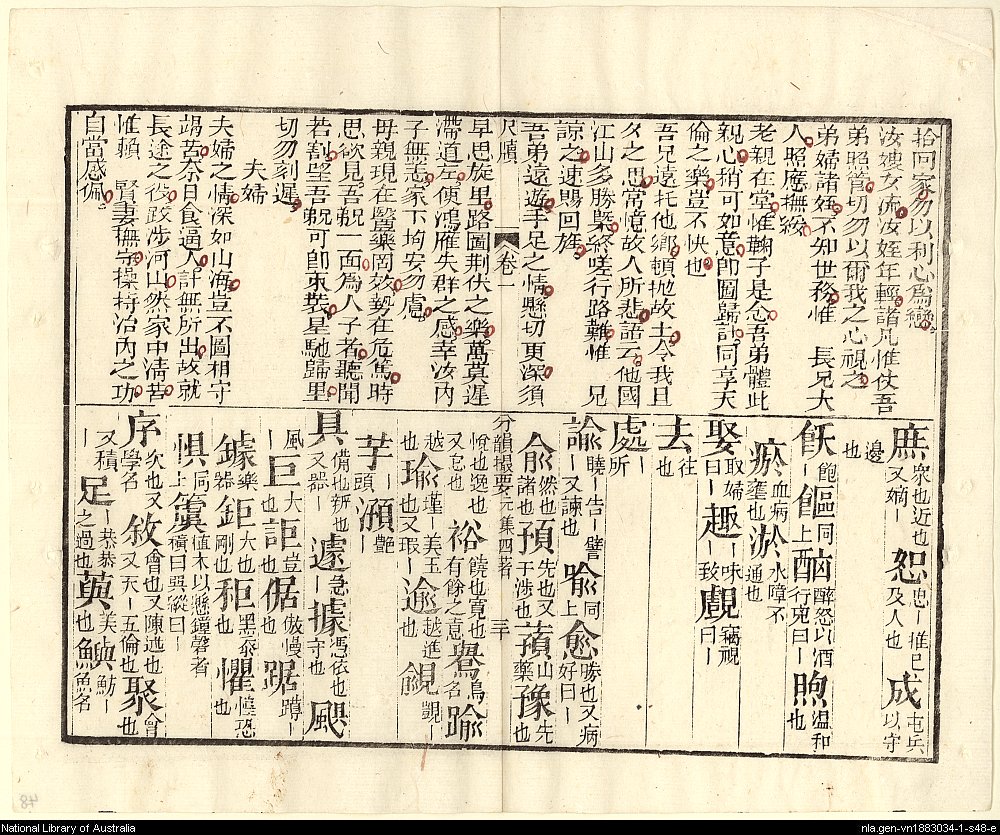 拾回家勿以利心爲戀
汝嫂女流汝姪年輕諸凡惟仗吾
弟照管切勿以爾我之心視之
弟婦諸姪不知世務惟　長兄大
人照應撫綏
老親在堂惟鞠子是念吾弟體此
親心稍可如意卽圖歸計同享天
倫之樂豈不快也
吾兄遠托他鄉頓抛故土令我且
夕之思常憶故人所悲語云他國
江山多勝槩終嗟行路難惟　兄
諒之速賜回旌
吾弟遠遊手足之情懸切更深須
尺牘　卷一
早思旋里路圖荆伏之樂萬莫遲
滯道左使鴻雁失群之感幸汝內
子無恙家下均安勿慮
毋親現在醫藥罔效勢在危篤時
思欲見吾親一面爲人子者聽聞
若割望吾親可卽束裝星馳歸里
切勿刻遲
夫婦
夫婦之情深如山海豈不圖相守
竭苦奈日食逼人計無所出故就
長途之役跋涉河山然家中淸苦
惟賴　賢妻撫守操持治內之功
自當感佩
庶衆也近也又嫡丨恕忠丨推己及人也戍屯兵以守
邊也
飫飽丨饇同上酗醉怒以酒行兇曰丨煦温和也
瘀血病也壅淤水障不通也
娶取婦曰丨趣丨味丨致覷竊視曰丨
去往也
處所丨
諭曉丨告丨譬丨又諫也喻同上愈勝也又病好曰丨
兪然也諾也預先也又干涉也蕷山藥豫先也
分韻撮要元集四者　三十
悅也逸也又怠也裕饒也寬也有餘之意鸒鳥名踰
越丨也瑜瑾丨美玉也又瑕丨逾越進也覦覬丨
芋丨頭灧丨
具備也辨也又器丨遽急丨據憑依也守也颶
風丨巨大也詎豈也倨傲慢也踞蹲丨
鐻樂器鉅大也剛也秬黑黍也懼惶恐也
惧同上簴植木以懸鐘磬者橫曰䇡縱曰丨
序次也又學名敘會也又陳述也又天丨五倫也聚會也
又積丨足丨恭恭之過也萸美也鱮魴丨魚名
National Library of Australia
nla.gen-vn1883034-1-s48-e